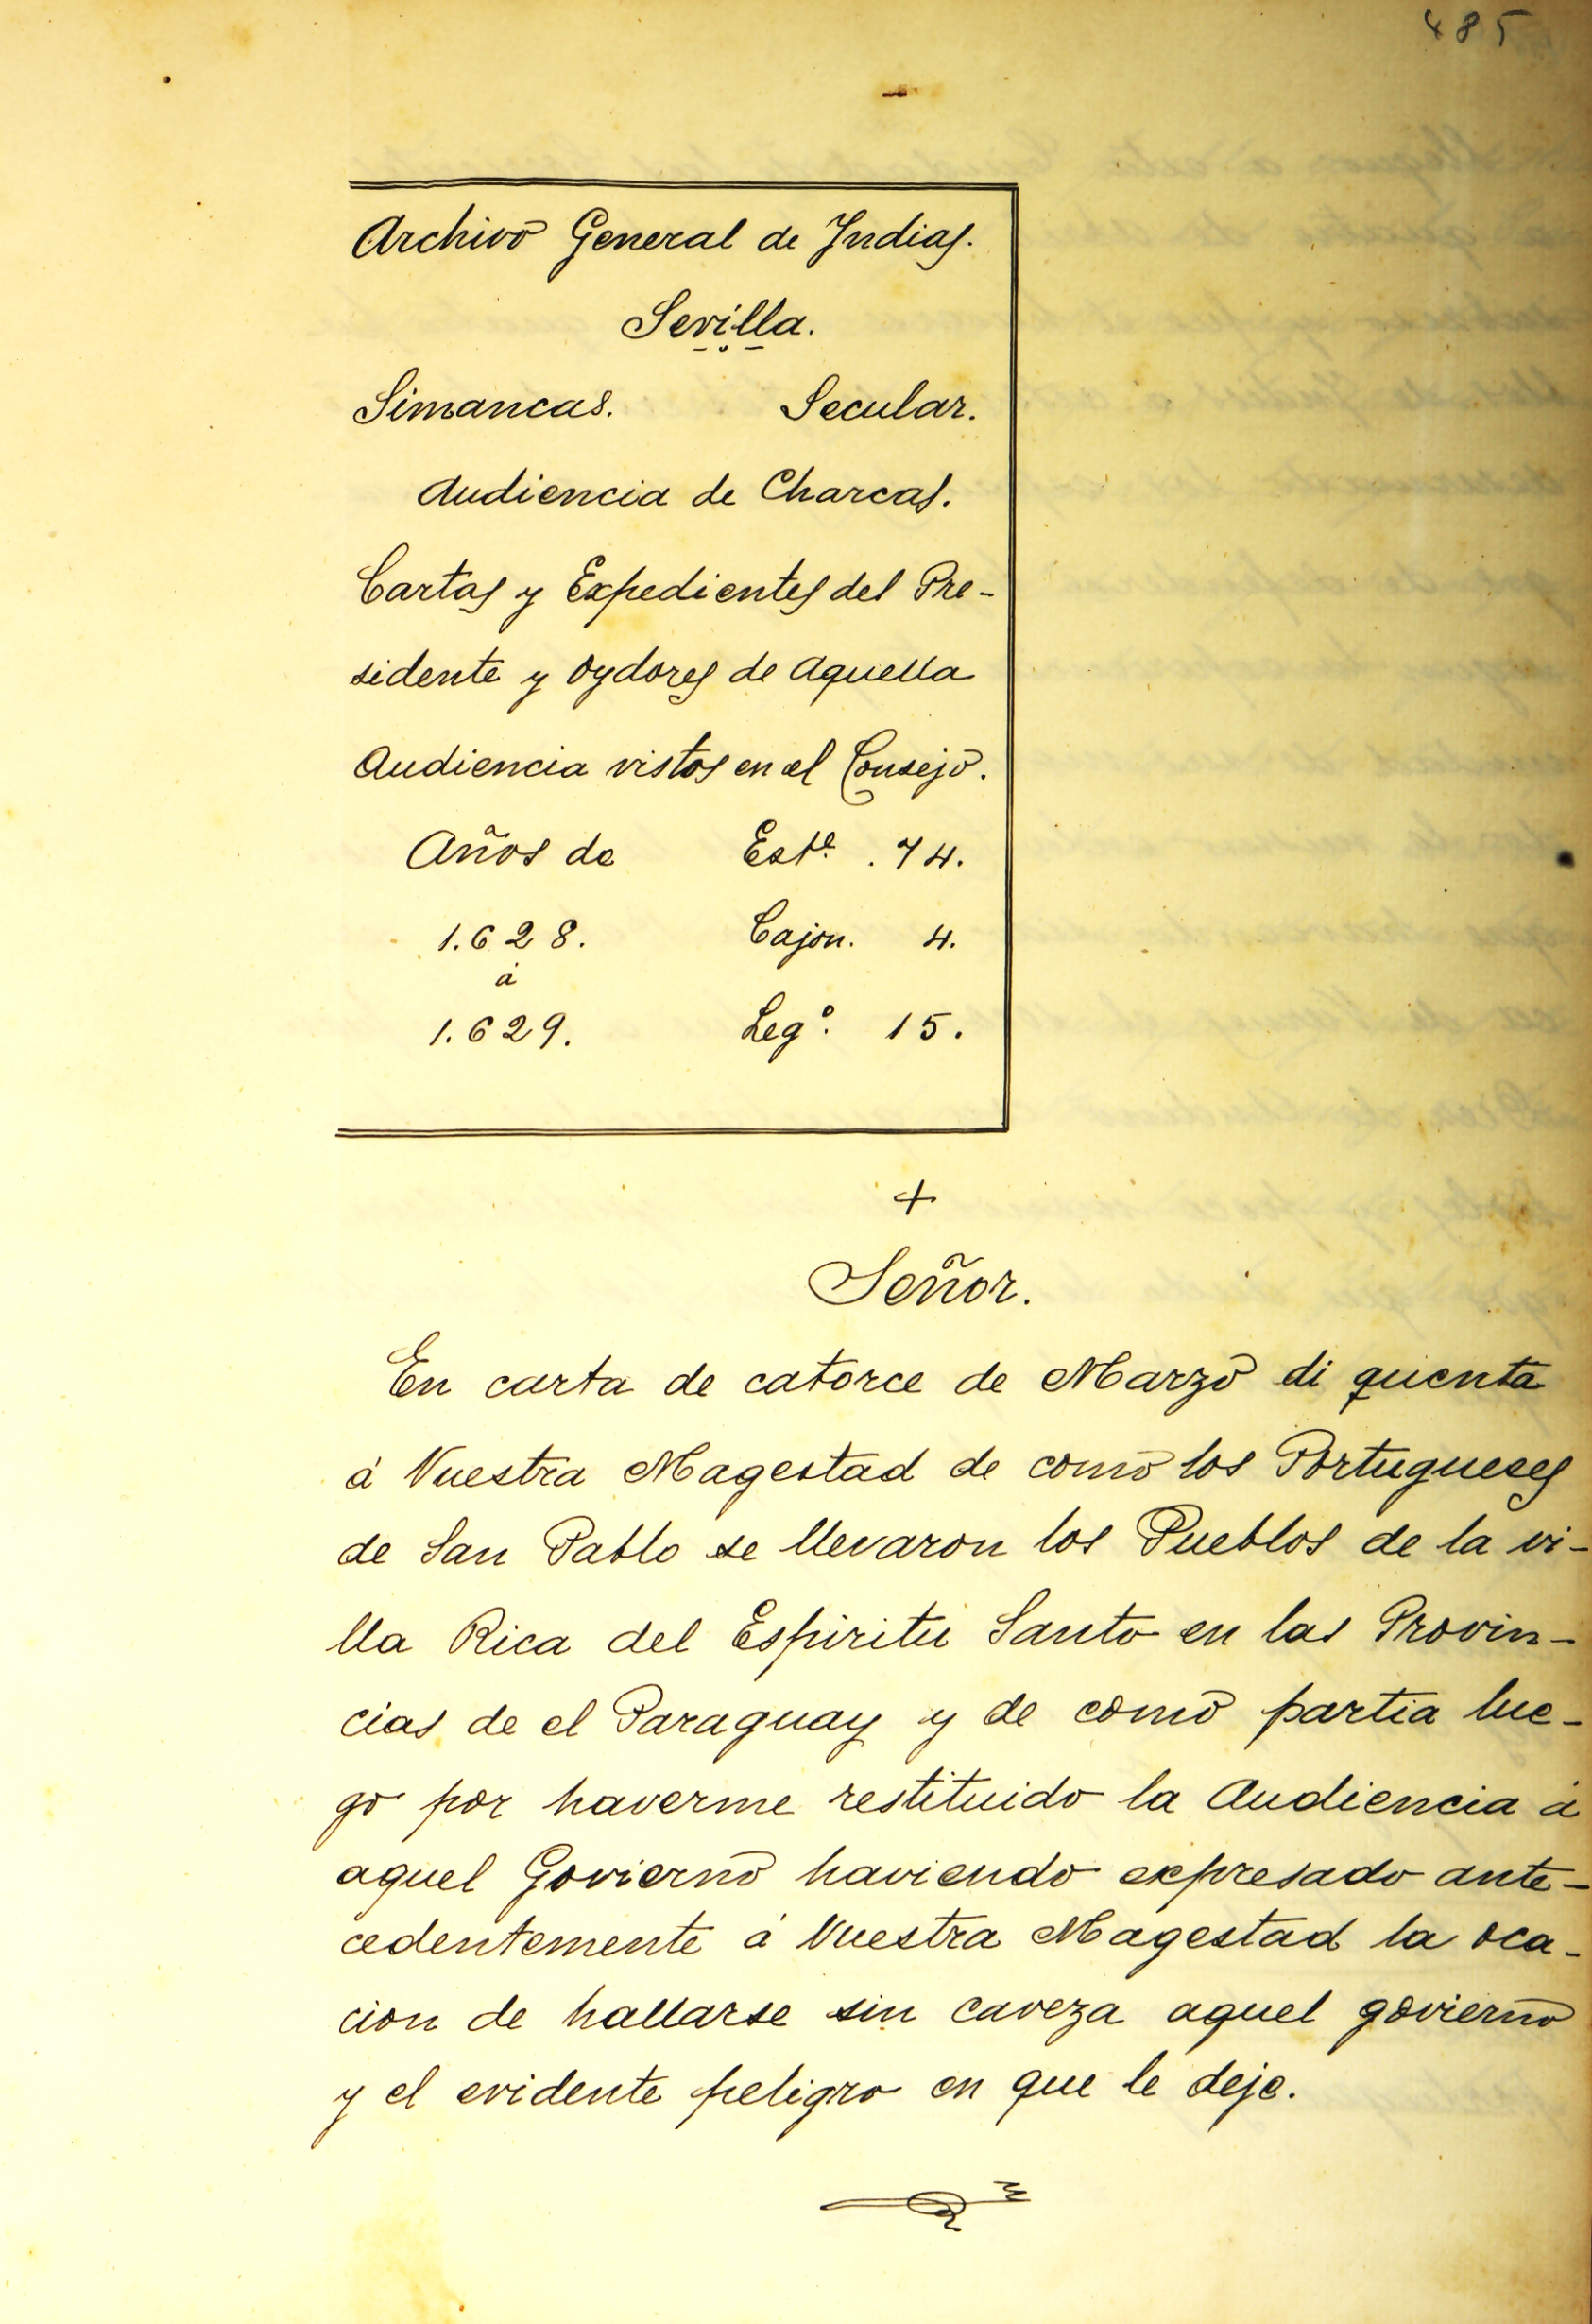 485
Archivo General de Indias.
Sevilla.
Simancas. Secular.
Audiencia de Charcas.
Cartas y Expedientes del Pre-
sidente y Oydores de Aquella
Audiencia vistos en el Consejo.
Años de Est.e 74.
1.628. Cajon. 4.
á
1.629. Leg.o 15.
+
Señor.
En carta de catorce de Marzo di quenta
á Vuestra Magestad de como los Portugueses
de San Pablo se llevaron los Pueblos de la vi-
lla Rica del Espiritu Santo en las Provin-
cias de el Paraguay y de como partia lue-
go por haverme restituido la Audiencia á
aquel Govierno haviendo expresado ante-
cedentemente á Vuestra Magestad la oca-
cion de hallarse sin caveza aquel govierno
y el evidente peligro en que le deje.